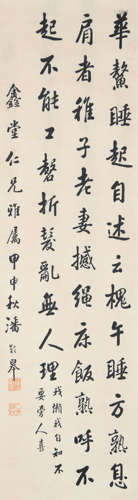 華鏊睡起自述云槐午睡方熟息
肩者稚子老妻撼绳床飯熟呼不
起不能工磬折髮亂無人理
我懶我自知不
要旁人喜
鑫堂仁兄雅屬甲申秋潘齡皋